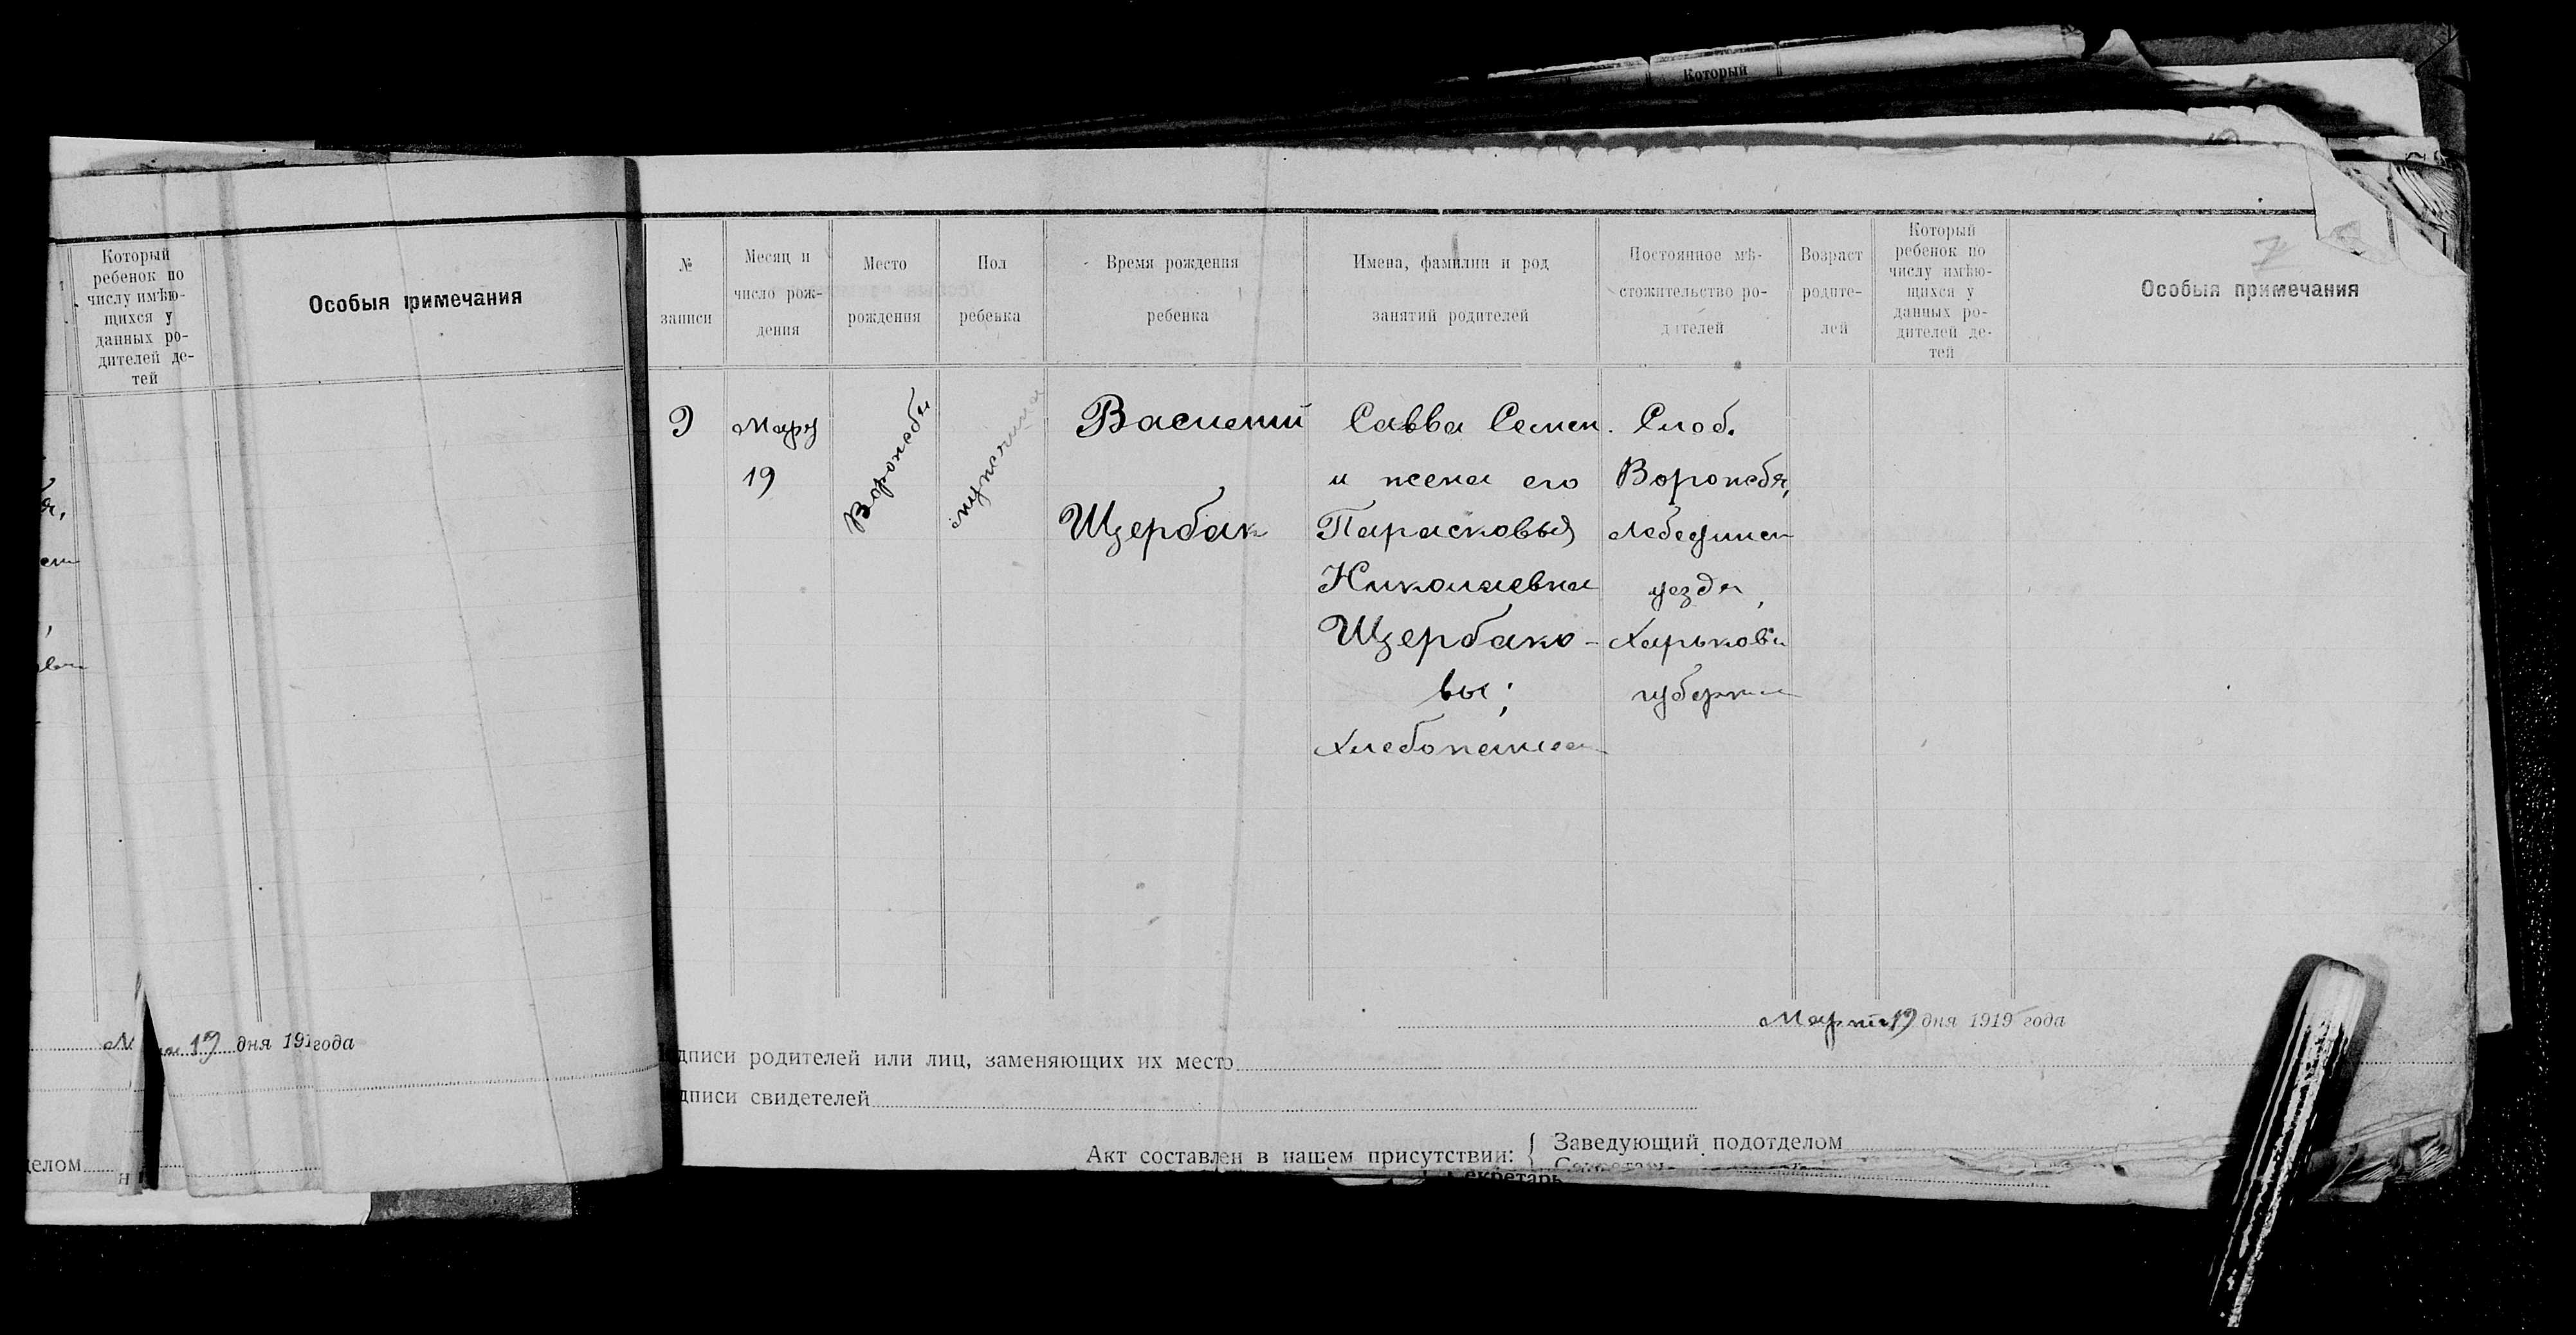 Который
Который
ребенок по
числу имѣю-
щихся у
данных ро-
дителей де-
тей
Особыя примечания
дня 191 года
№
записи
Месяц и
число рож-
дения
Место
рождения
Пол
ребенка
Время рождения
ребенка
Имена, фамилии и род
занятий родителей
Постоянное мѣ-
стожительство ро-
дителей
Возраст
родите-
лей
Который
ребенок по
числу имѣю-
щихся у
данных ро-
дителей де-
тей
Особыя примечания
9
Март
19
Ворожба
мужеский
Василий
Щербак
Савва Семен.
и жена его
Парасковья
Николаевна
Щербако-
вы;
Хлебопашец
Слоб.
Ворожба,
Лебедин
уезда,
Харьков
губернии
Марта 19 дня 1919 года
дписи родителей или лиц, заменяющих их место
дписи свидетелей
Акт составлен в нашем присутствии:
Заведующий подотделом
екретарь